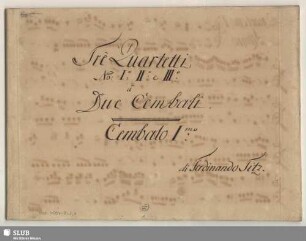 Tre Quartetti
No: I:o II:o III:o
à
Due Cembali
Cembalo I:mo
di Ferdinando Titz.
SLUB
Wir führen Wissen.